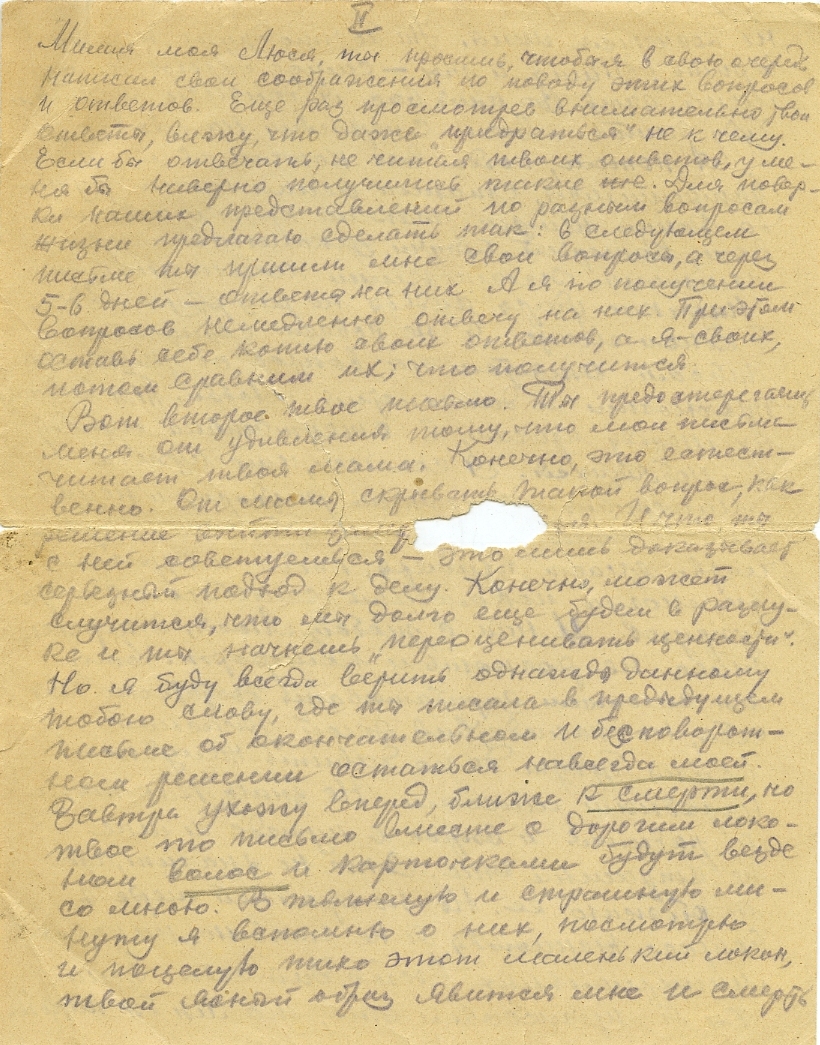 II
Милая моя Люся, ты просишь, чтобы я в свою очередь
написал свои соображения по поводу этих вопросов
и ответов. Еще раз просмотрев внимательно твои
ответы, вижу, что даже „придраться" не к чему.
Если бы отвечать, не читая твоих ответов, у ме-
ня бы наверно получились такие же. Для повер-
ки наших представлений по разным вопросам
жизни предлагаю сделать так: в следующем
письме ты пришли мне свои вопросы, а через
5-6 дней – ответы на них. А я по получении
вопросов немедленно отвечу на них. При этом
оставь себе копию своих ответов, а я – своих,
потом сравним их; что получится.
Вот второе твое письмо. Ты предостерегаешь
меня от удивления тому, что мои письма
читает твоя мама. Конечно, это естест-
венно. От мамы скрывать такой вопрос, как
решение И что ты
с ней советуешься – это лишь доказывает
серьезный подход к делу. Конечно, может
случится, что мы долго еще будем в разлу-
ке и ты начнешь „переоценивать ценности".
Но я буду всегда верить однажды данному
тобою слову, где ты писала в предыдущем
письме об окончательном и бесповорот-
ном решении остаться навсегда моей.
Завтра ухожу вперед, ближе к смерти, но
твое то письмо вместе с дорогим локо-
ном волос и карточками будут везде
со мною. В тяжелую и страшную ми-
нуту я вспомню о них, посмотрю
и поцелую тихо этот маленький локон,
твой ясный образ явится мне и смерть